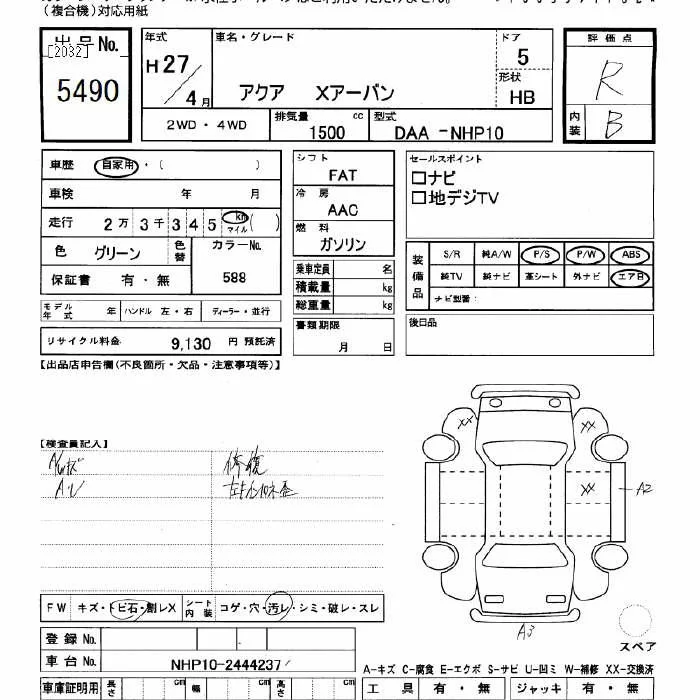 (複合機)対応用紙
出品No.
[2032]
5490
年式
H27/4月
車名・グレード
アクア Xアーバン
ドア
5
形状
HB
評価点
R
内装
B
2WD・4WD
排気量
1500 cc
型式
DAA -NHP10
車歴 自家用・( )
車検 年 月
走行 2万3千345 km マイル ( )
色 グリーン
色替
カラーNo.
588
保証書 有・無
モデル年式 年
ハンドル 左・右
ディーラー・並行
リサイクル料金 9,130 円 預託済
シフト
FAT
冷房
AAC
燃料
ガソリン
乗車定員 名
積載量 kg
総重量 kg
書類期限
月 日
セールスポイント
□ナビ
□地デジTV
装備品
S/R 純A/W P/S P/W ABS
純TV 純ナビ 革シート 外ナビ エアB
ナビ型番:
後日品
【出品店申告欄(不良箇所・欠品・注意事項等)】
【検査員記入】
修復
XX
XX
XX
A2
A3
スペア
FW キズ・トビ石・割レX
シート内装 コゲ・穴・汚レ・シミ・破レ・スレ
登録No.
車台No. NHP10-2444237
A-キズ C-腐食 E-エクボ S-サビ U-凹ミ W-補修 XX-交換済
車庫証明用 長さ cm 幅 cm 高さ cm
工具 有・無 ジャッキ 有・無